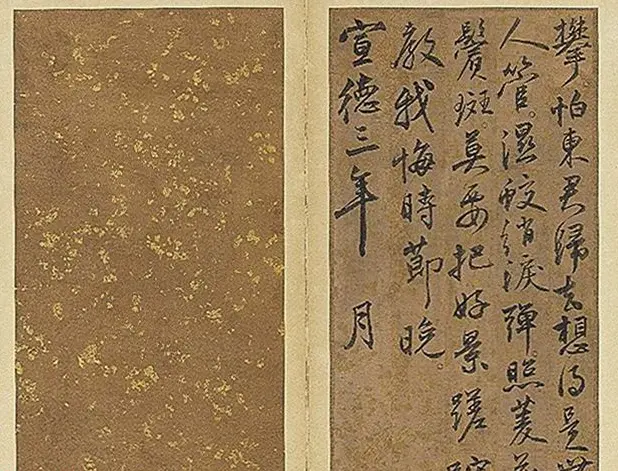 攀怕東君歸去想得是
人管濕鮫綃淚彈照菱
鬢斑莫要把好景蹉
教我悔時節晚
宣德三年 月